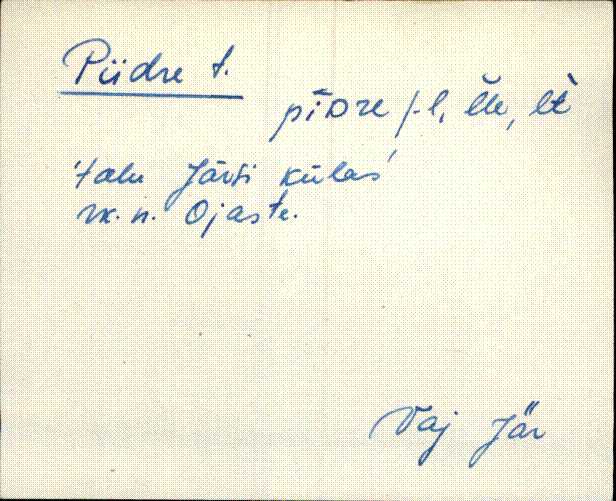 Piidre t.
pīDre /-l, l̆le, lt̀
'talu Järsi külas'
rk. n. Ojaste.
Vaj Jär